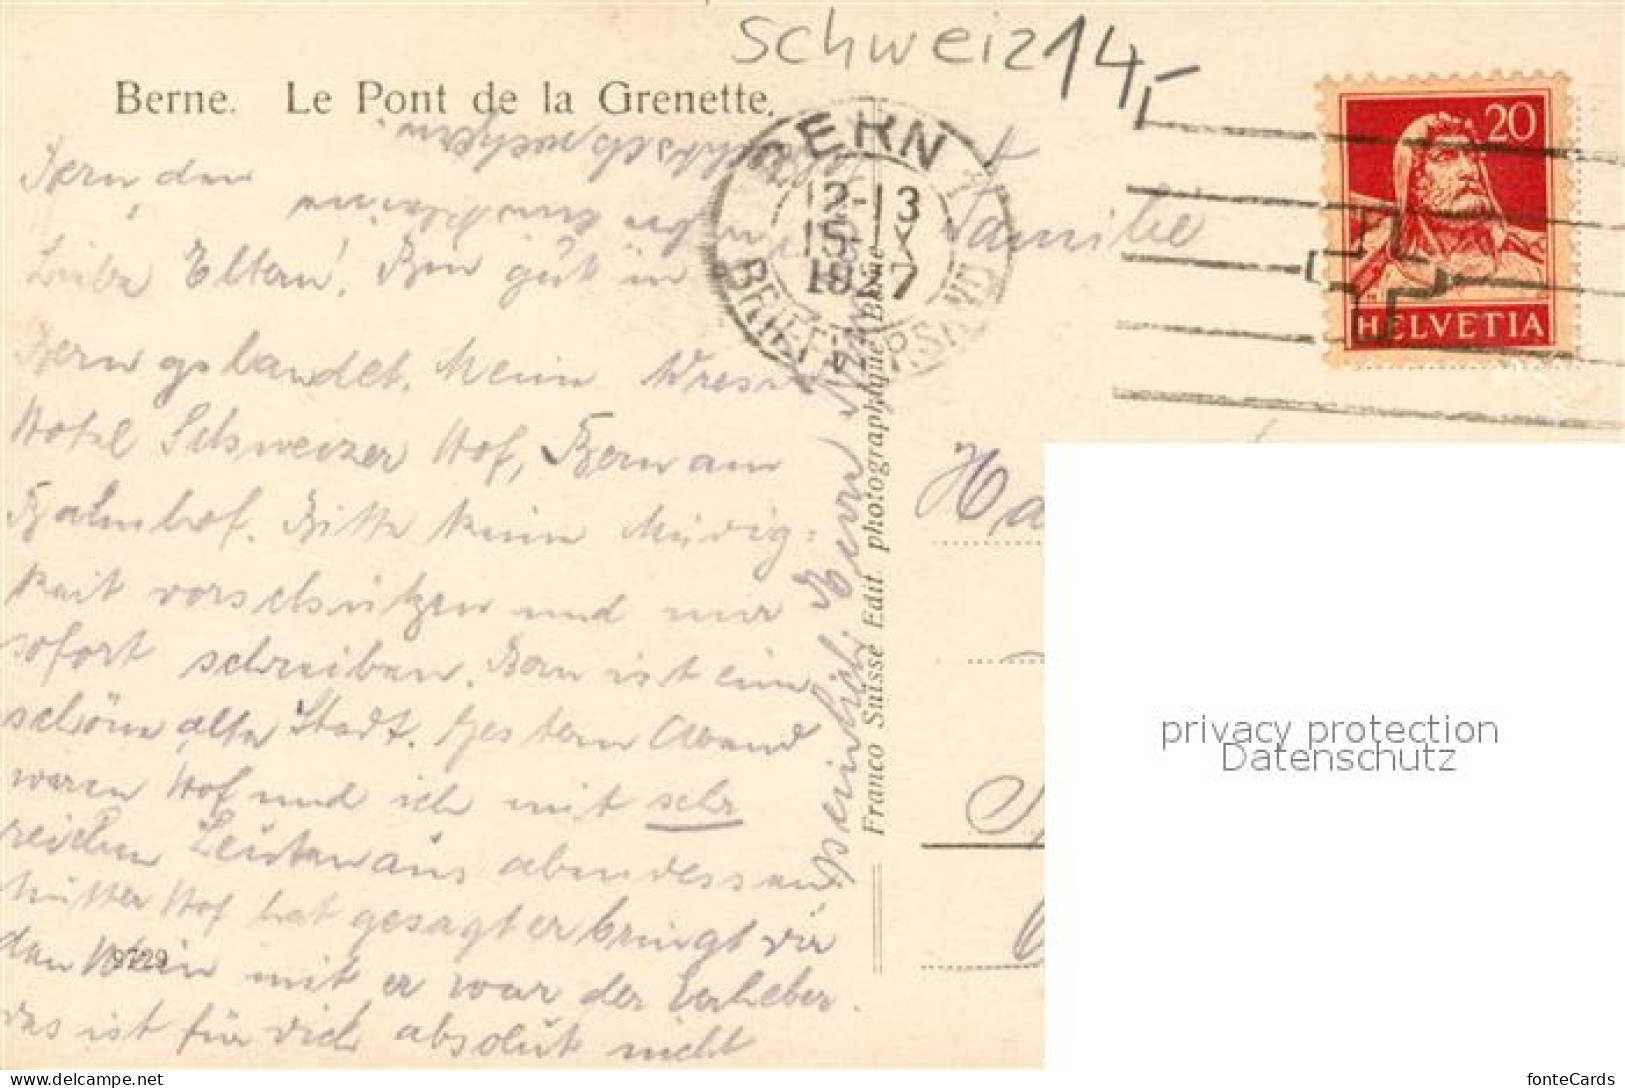 Schweiz 14,-
Berne. Le Pont de la Grenette.
BERN 1
12-13
15·IX
1927
BRIEFVERSAND
20
HELVETIA
Bern, den
Liebe Eltern! Bin gut in
Bern gelandet. Meine Adresse
Hotel Schweizer Hof, Bern am
Bahnhof. Bitte keine Müdig=
keit vorschützen und mir
sofort schreiben. Bern ist eine
schöne alte Stadt. Gestern Abend
waren Hof und ich mit sehr
reichen Leuten aus abendessen.
Mutter Hof hat gesagt er bringt dir
den Wein mit er war der Erheber.
das ist für dich absolut nicht
9729
Franco Suisse Edit. photographique Berne
Familie
Ha
privacy protection
Datenschutz
www.delcampe.net
fonteCards